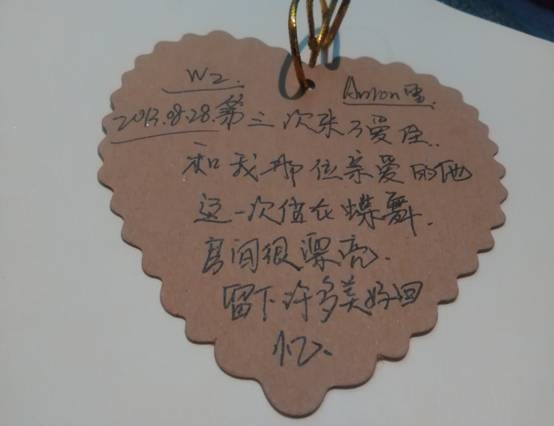 W2.
2013.8.28.第三次来了爱住..
和我那位亲爱的他
这一次住在蝶舞.
房间很漂亮.
留下许多美好回
忆.